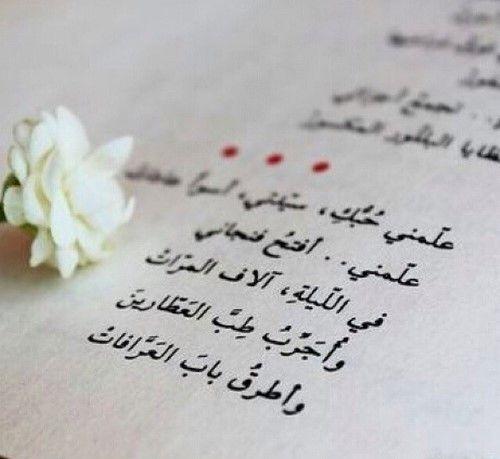 . . تجمع أجزائي
البللور المكسور
علّمني حُبُّكِ ، سيّدتي، أسوأ
علّمني . . أفتحُ فنجاني
في اللّيلةِ ، آلاف المرّاتْ
وأُجَرّبُ طِبَّ العَطّارينَ
وأطرقُ بابَ العَرَّافاتْ